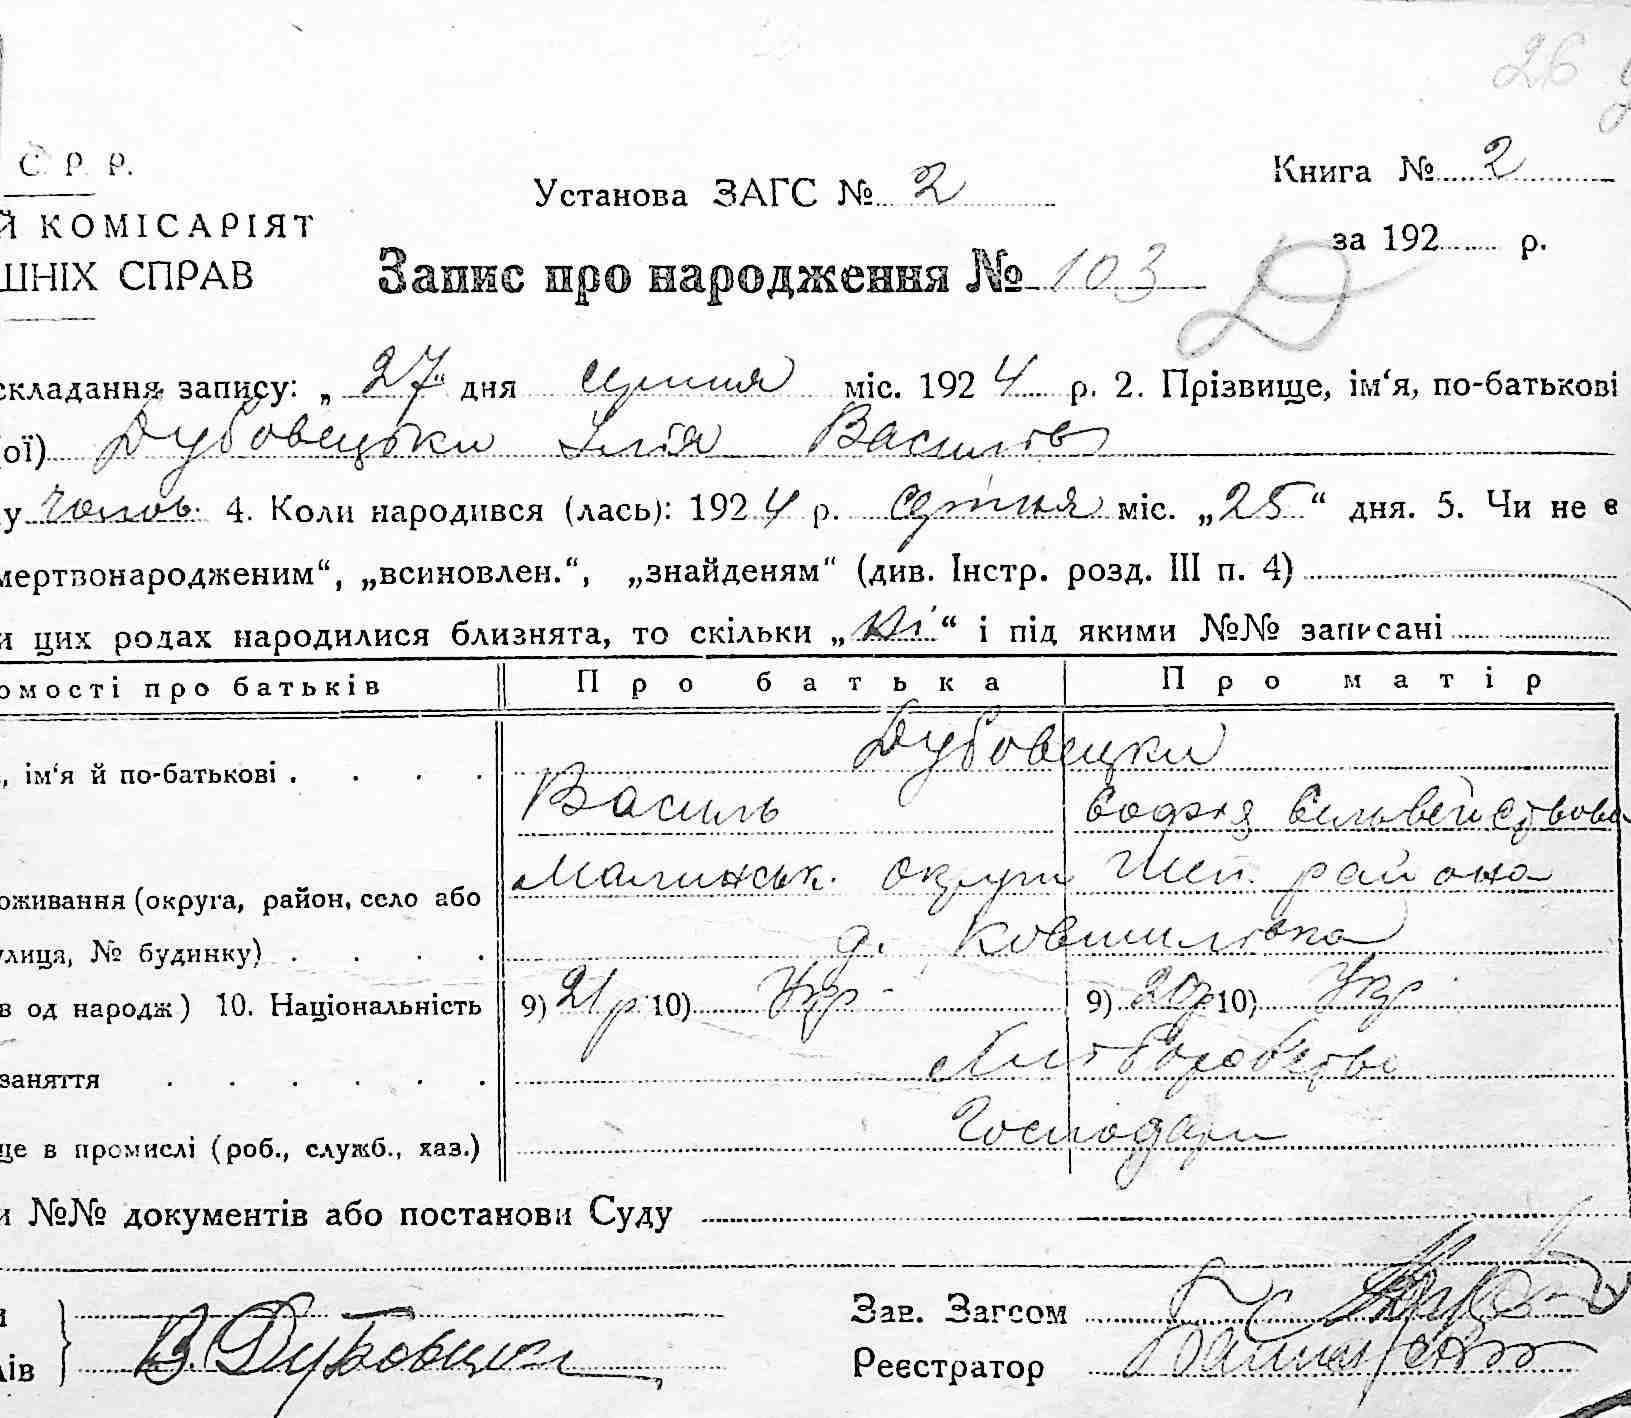 26
С. Р. Р.
Й КОМІСАРІЯТ
ШНІХ СПРАВ
Установа ЗАГС № 2
Книга № 2
за 192 р.
Запис про народження № 103
Д
складання запису: „27“ дня серпня міс. 1924 р. 2. Прізвище, ім‘я, по-батькові
ої) Дубовецьки Ілія Василів
у чолов. 4. Коли народився (лась): 1924 р. серпня міс. „25“ дня. 5. Чи не є
мертвонародженим“, „всиновлен.“, „знайденям“ (див. Інстр. розд. III п. 4)
и цих родах народилися близнята, то скільки „Ні“ і під якими №№ записані
омості про батьків Про батька Про матір
Дубовецки
, ім‘я й по-батькові .
Василь Софія Сильвейстрова
Малинськ. округи Шеп. района
оживання (округа, район, село або
улиця, № будинку) . д.
в од народж) 10. Національність 9) 21 р 10) Укр 9) 20 р 10) Укр
заняття Хліборобство
ще в промислі (роб., служб., хаз.) Господари
и №№ документів або постанови Суду
и
ків В. Дубовецки
Зав. Загсом
Реєстратор